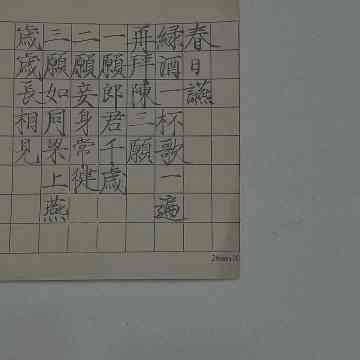 春日讌
綠酒一杯歌一遍
再拜陳三願
一願郎君千歲
二願妾身常健
三願如同梁上燕
歲歲長相見